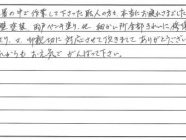 暑の中で作業して下さった職人の方々、本当にお疲れさまでした
壁塗装、雨戸ペンキ塗り、他、細かい所全部きれいに
より、又、御親切に対応させて頂きまして ありがとうござい
からも お元気で がんばって下さい。